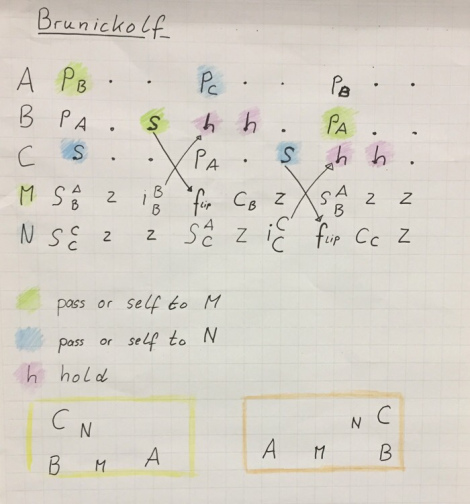 Brunickolf
A P_B . . P_C . . P_B . .
B P_A . s h h . P_A . .
C s . . P_A . s h h .
M S^A_B z i^B_B flip C_B z S^A_B z z
N S^C_C z z S^A_C z i^C_C flip C_C z
pass or self to M
pass or self to N
h hold
C N N C
B M A A M B